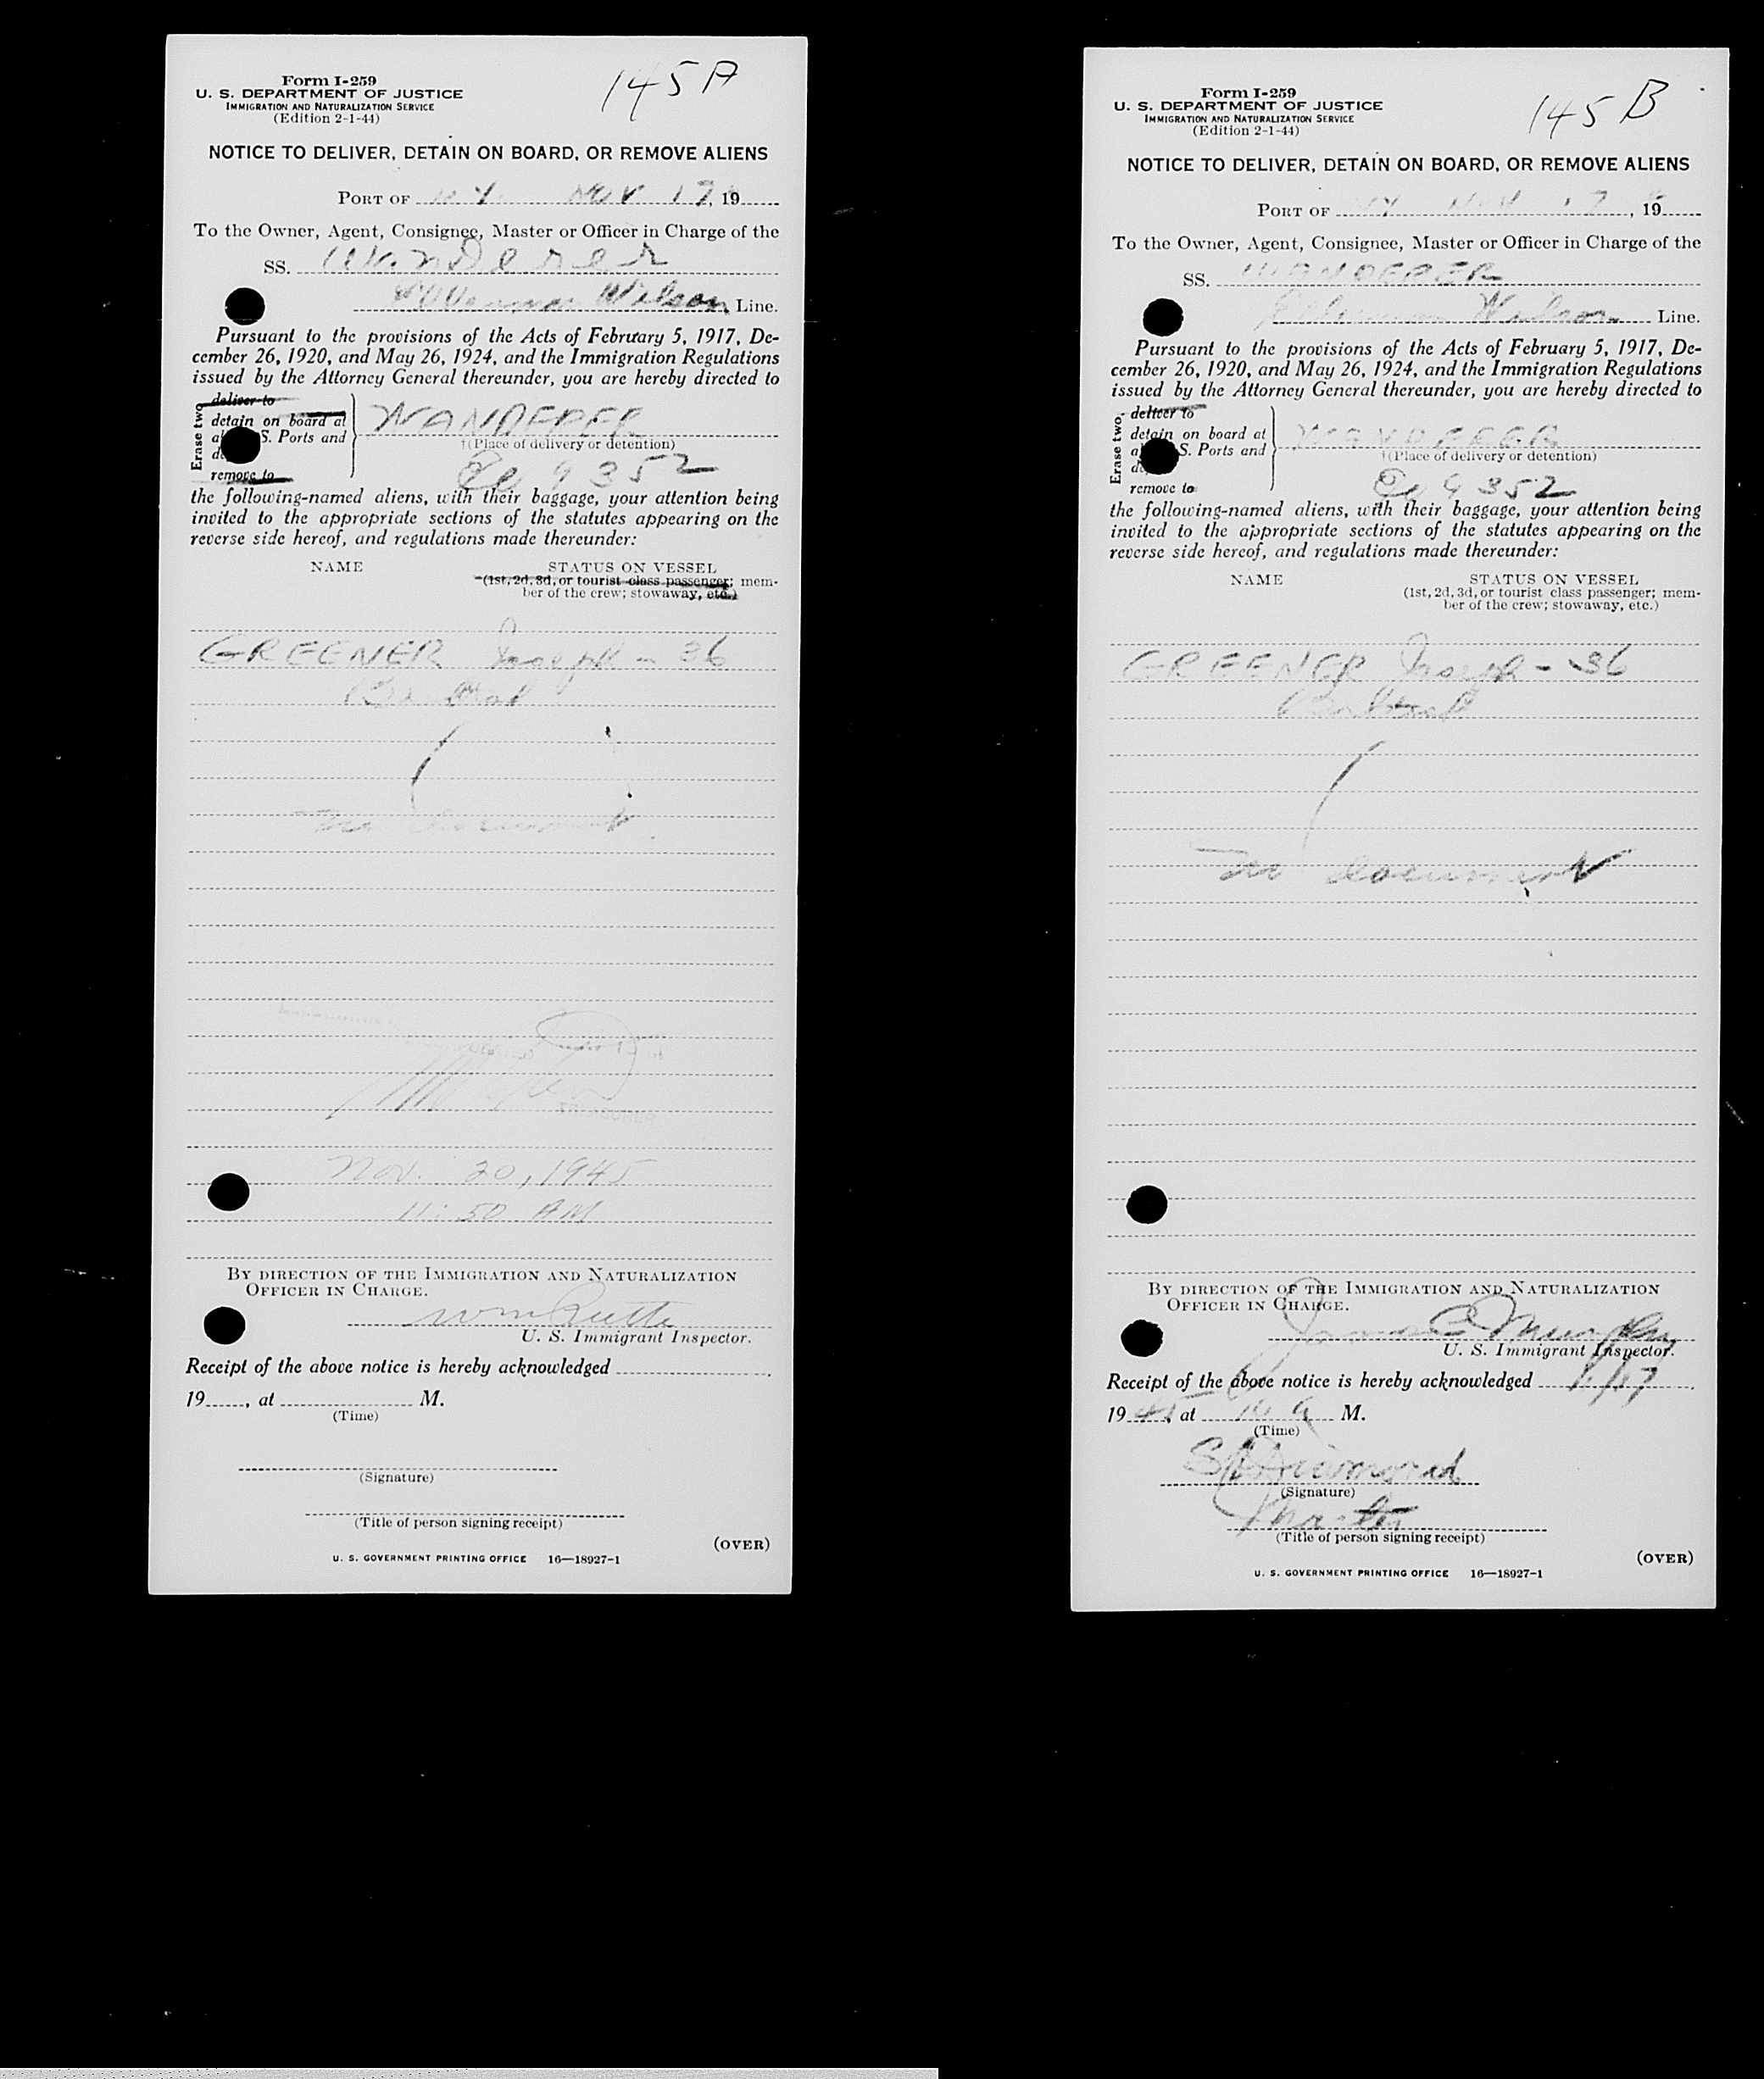 145A
Form I-259
U. S. DEPARTMENT OF JUSTICE
IMMIGRATION AND NATURALIZATION SERVICE
(Edition 2-1-44)
NOTICE TO DELIVER, DETAIN ON BOARD, OR REMOVE ALIENS
PORT OF N.Y. NOV 17, 19
To the Owner, Agent, Consignee, Master or Officer in Charge of the
SS. Wanderer
Ellerman Wilson Line.
Pursuant to the provisions of the Acts of February 5, 1917, De-
cember 26, 1920, and May 26, 1924, and the Immigration Regulations
issued by the Attorney General thereunder, you are hereby directed to
Erase two
deliver to
detain on board at
S. Ports and
remove to
WANDERER
†(Place of delivery or detention)
9352
the following-named aliens, with their baggage, your attention being
invited to the appropriate sections of the statutes appearing on the
reverse side hereof, and regulations made thereunder:
NAME STATUS ON VESSEL
(1st, 2d, 3d, or tourist class passenger; mem-
ber of the crew; stowaway, etc.)
GREENER Joseph - 36
No document
Nov. 20, 1945
11:50 AM
BY DIRECTION OF THE IMMIGRATION AND NATURALIZATION
OFFICER IN CHARGE.
U. S. Immigrant Inspector.
Receipt of the above notice is hereby acknowledged
19, at M.
(Time)
(Signature)
(Title of person signing receipt)
(OVER)
U. S. GOVERNMENT PRINTING OFFICE 16—18927-1
145 B
Form I-259
U. S. DEPARTMENT OF JUSTICE
IMMIGRATION AND NATURALIZATION SERVICE
(Edition 2-1-44)
NOTICE TO DELIVER, DETAIN ON BOARD, OR REMOVE ALIENS
PORT OF NY NOV 17, 19
To the Owner, Agent, Consignee, Master or Officer in Charge of the
SS. WANDERER
Ellerman Wilson Line.
Pursuant to the provisions of the Acts of February 5, 1917, De-
cember 26, 1920, and May 26, 1924, and the Immigration Regulations
issued by the Attorney General thereunder, you are hereby directed to
Erase two
deliver to
detain on board at
S. Ports and
remove to
WANDERER
†(Place of delivery or detention)
9352
the following-named aliens, with their baggage, your attention being
invited to the appropriate sections of the statutes appearing on the
reverse side hereof, and regulations made thereunder:
NAME STATUS ON VESSEL
(1st, 2d, 3d, or tourist class passenger; mem-
ber of the crew; stowaway, etc.)
GREENER Joseph - 36
No document
BY DIRECTION OF THE IMMIGRATION AND NATURALIZATION
OFFICER IN CHARGE.
James C Murphy
U. S. Immigrant Inspector.
Receipt of the above notice is hereby acknowledged 11/17
1945, at 10 A M.
(Time)
Diamond
(Signature)
Master
(Title of person signing receipt)
(OVER)
U. S. GOVERNMENT PRINTING OFFICE 16—18927-1